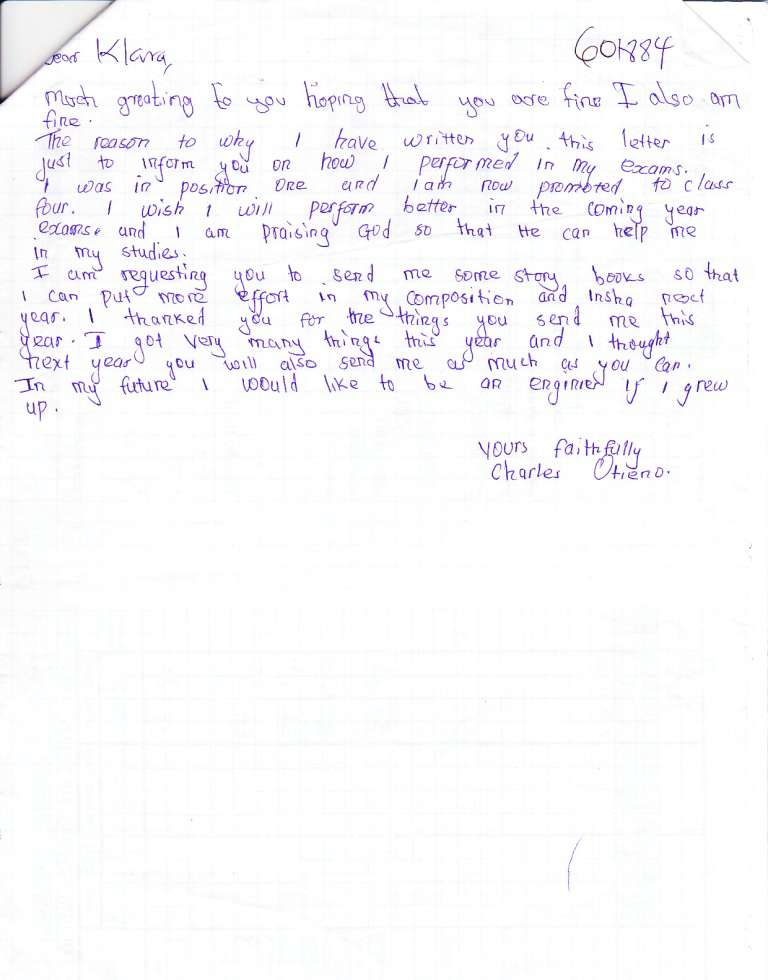 Dear Klara,
601884
Much greating to you hoping that you are fine I also am
fine.
The reason to why I have written you this letter is
just to inform you on how I performed in my exams.
I was in position one and I am now promoted to class
four. I wish I will perform better in the coming year
exams. and I am praising God so that He can help me
in my studies.
I am requesting you to send me some story books so that
I can put more effort in my composition and Insha next
year. I thanked you for the things you send me this
year. I got very many things this year and I thought
next year you will also send me as much as you can.
In my future I would like to be an enginier if I grew
up.
Yours faithfully
Charles Otieno.